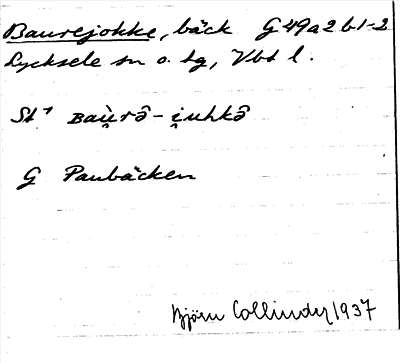 Baurejokke, bäck G 49 a 2 b 1-2
Lycksele sn o. tg, Vbt l.
St⁷ ʙaù̯rə̂ - i̯uhkə̂
G Paubäcken
Björn Collinder 1937